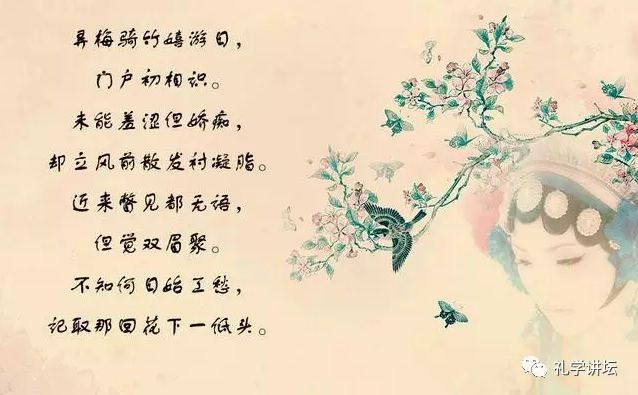 弄梅骑竹嬉游日，
门户初相识。
未能羞涩但娇痴，
却立风前散发衬凝脂。
近来瞥见都无语，
但觉双眉聚。
不知何日始工愁，
记取那回花下一低头。
礼学讲坛